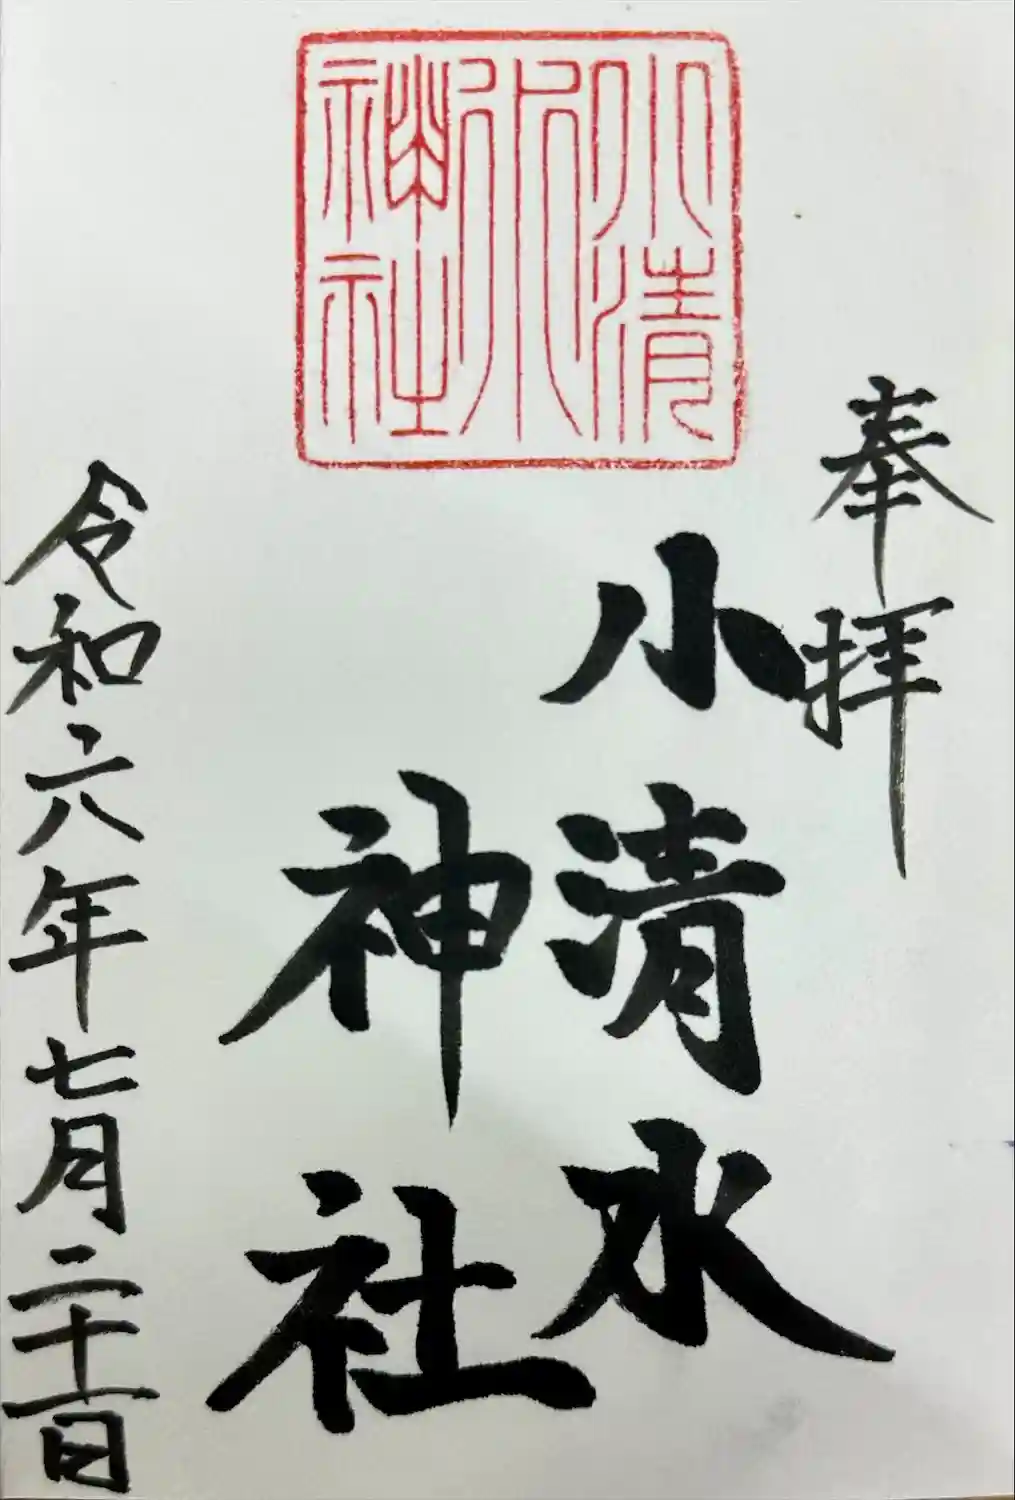 奉拝
小清水
神社
令和六年七月二十一日
小清
水
神社